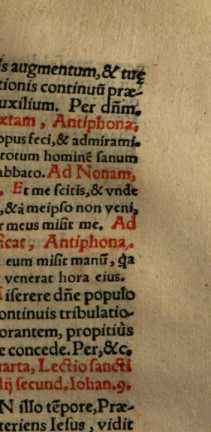 is augmentum, & tuę
tionis continuū præ-
uxilium. Per dñm.
xtam, Antiphona,
opus feci, & admirami.
totum hominē sanum
abbato. Ad Nonam,
. Et me scitis, & vnde
, & à meipso non veni,
r meus misit me. Ad
ficat, Antiphona.
eum misit manū, q̃a
venerat hora eius.
iserere dñe populo
ontinuis tribulatio-
orantem, propitiùs
e concede. Per, &c.
arta, Lectio sancti
lij secund. Iohan. 9.
N illo tẽpore, Præ-
teriens Iesus, vidit